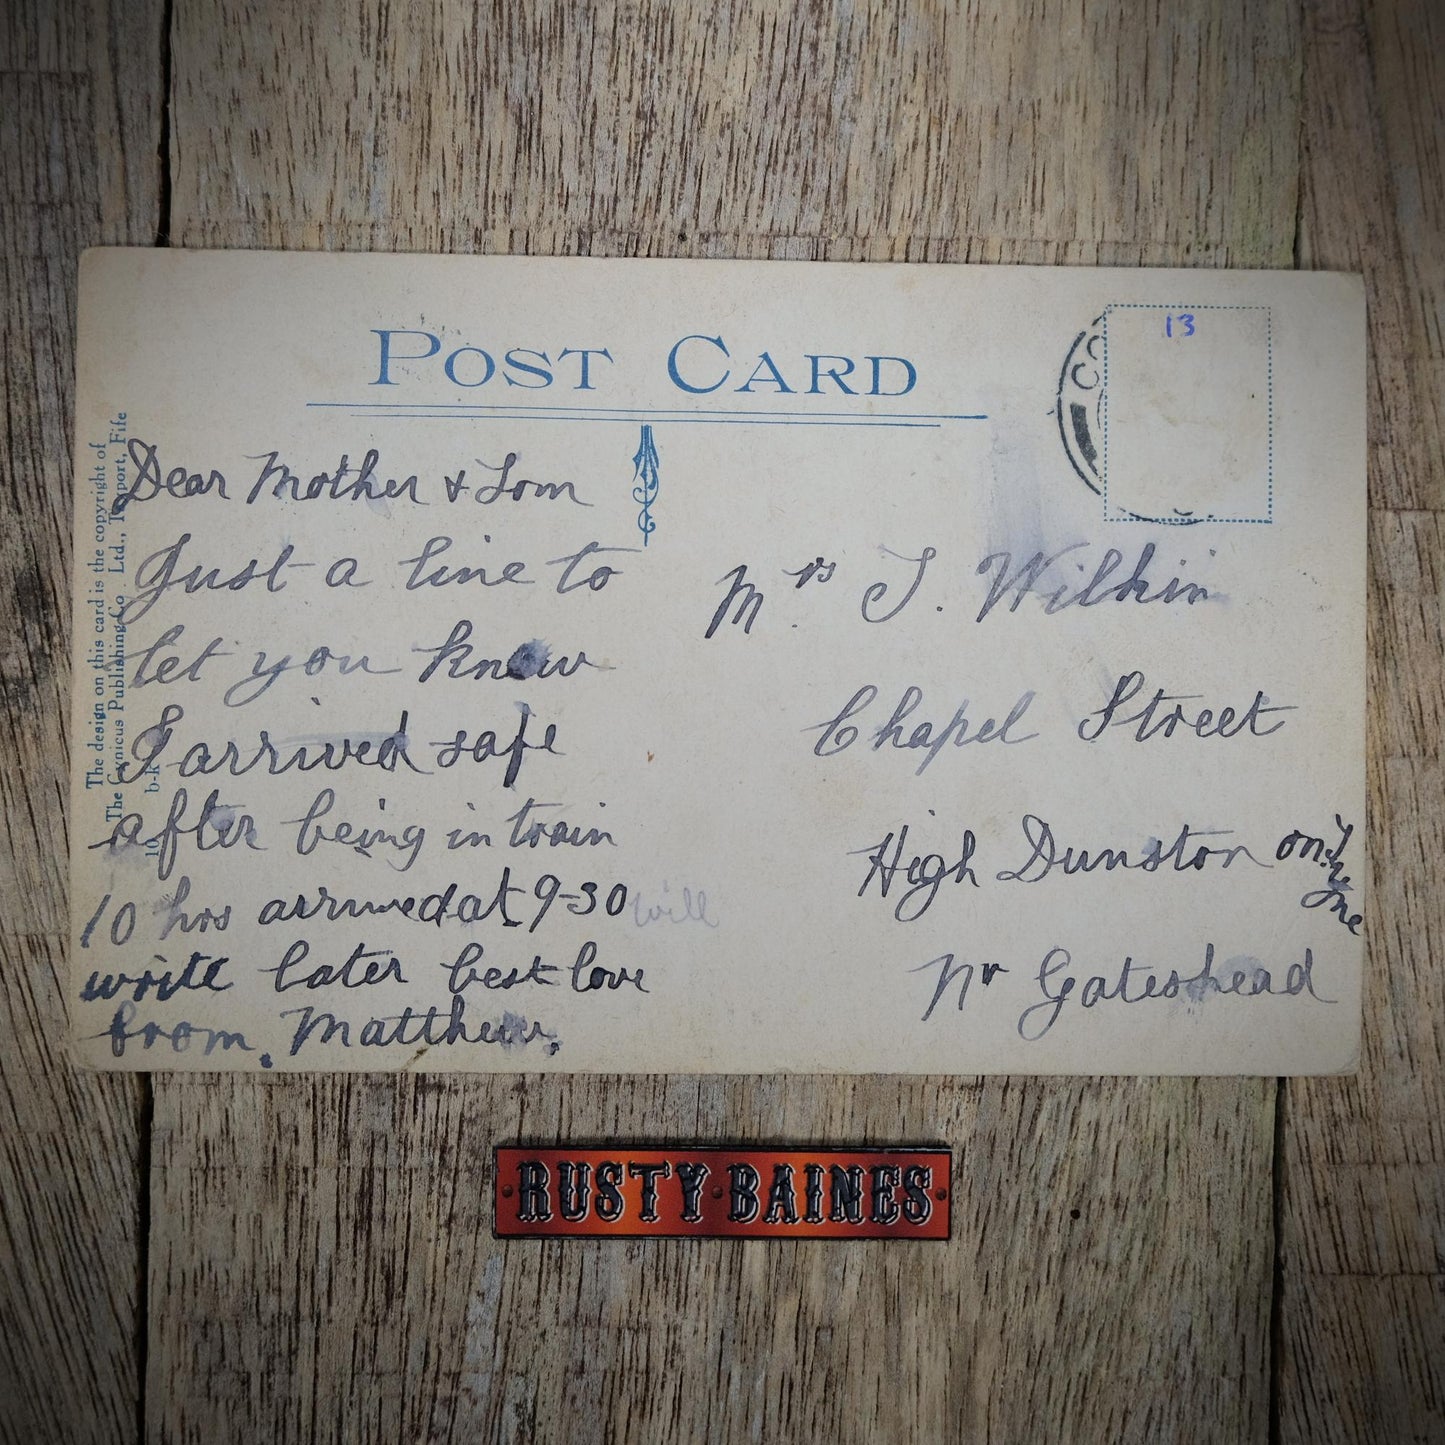 POST CARD
13
CO
The design on this card is the copyright of
The Cynicus Publishing Co. Ltd., Tayport, Fife
b-k
10
Dear Mother & Tom
Just a line to
let you know
I arrived safe
after being in train
10 hrs arrived at 9-30 will
write later best love
from. Matthew.
Mrs T. Wilkin
Chapel Street
High Dunston on Tyne
Nr Gateshead
RUSTY·BAINES